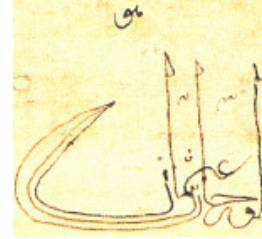 هو
اورخان بن عثمان